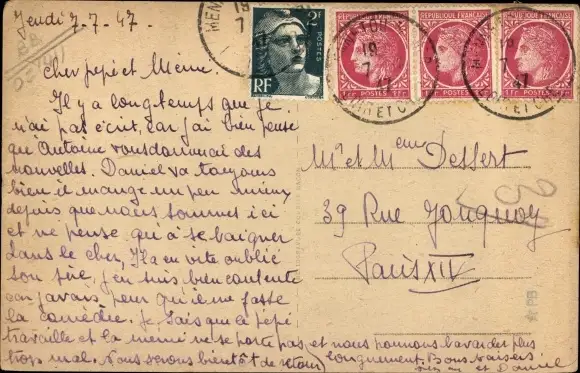 Jeudi 7-7-47.
Cher pépé et Mémé.
Il y a longtemps que je
n'ai pas écrit, car j'ai bien pensé
qu'Antoine vous donnait des
nouvelles. Daniel va toujours
bien il mange un peu mieux
depuis que nous sommes ici
et ne pense qu'à se baigner
dans le cher, Il a en vite oublié
son père, j'en suis bien contente
car j'avais peur qu'il me fasse
la comédie. Je sais que le pépé
travaille et la mémé ne se porte pas
trop mal. Nous serons bientôt de retour
et nous pourrons bavarder plus
longuement. Bons Baisers
et Daniel
2F
POSTES
RF
REPUBLIQUE FRANÇAISE
1F POSTES
REPUBLIQUE FRANÇAISE
POSTES
REPUBLIQUE FRANÇAISE
POSTES 1F
MEN
19
7
47
19
7
47
LOIR ET CHER
19
7
47
LOIR ET CHER
Mr et Mem Dessert
39 Rue Jonquoy
Paris XIV